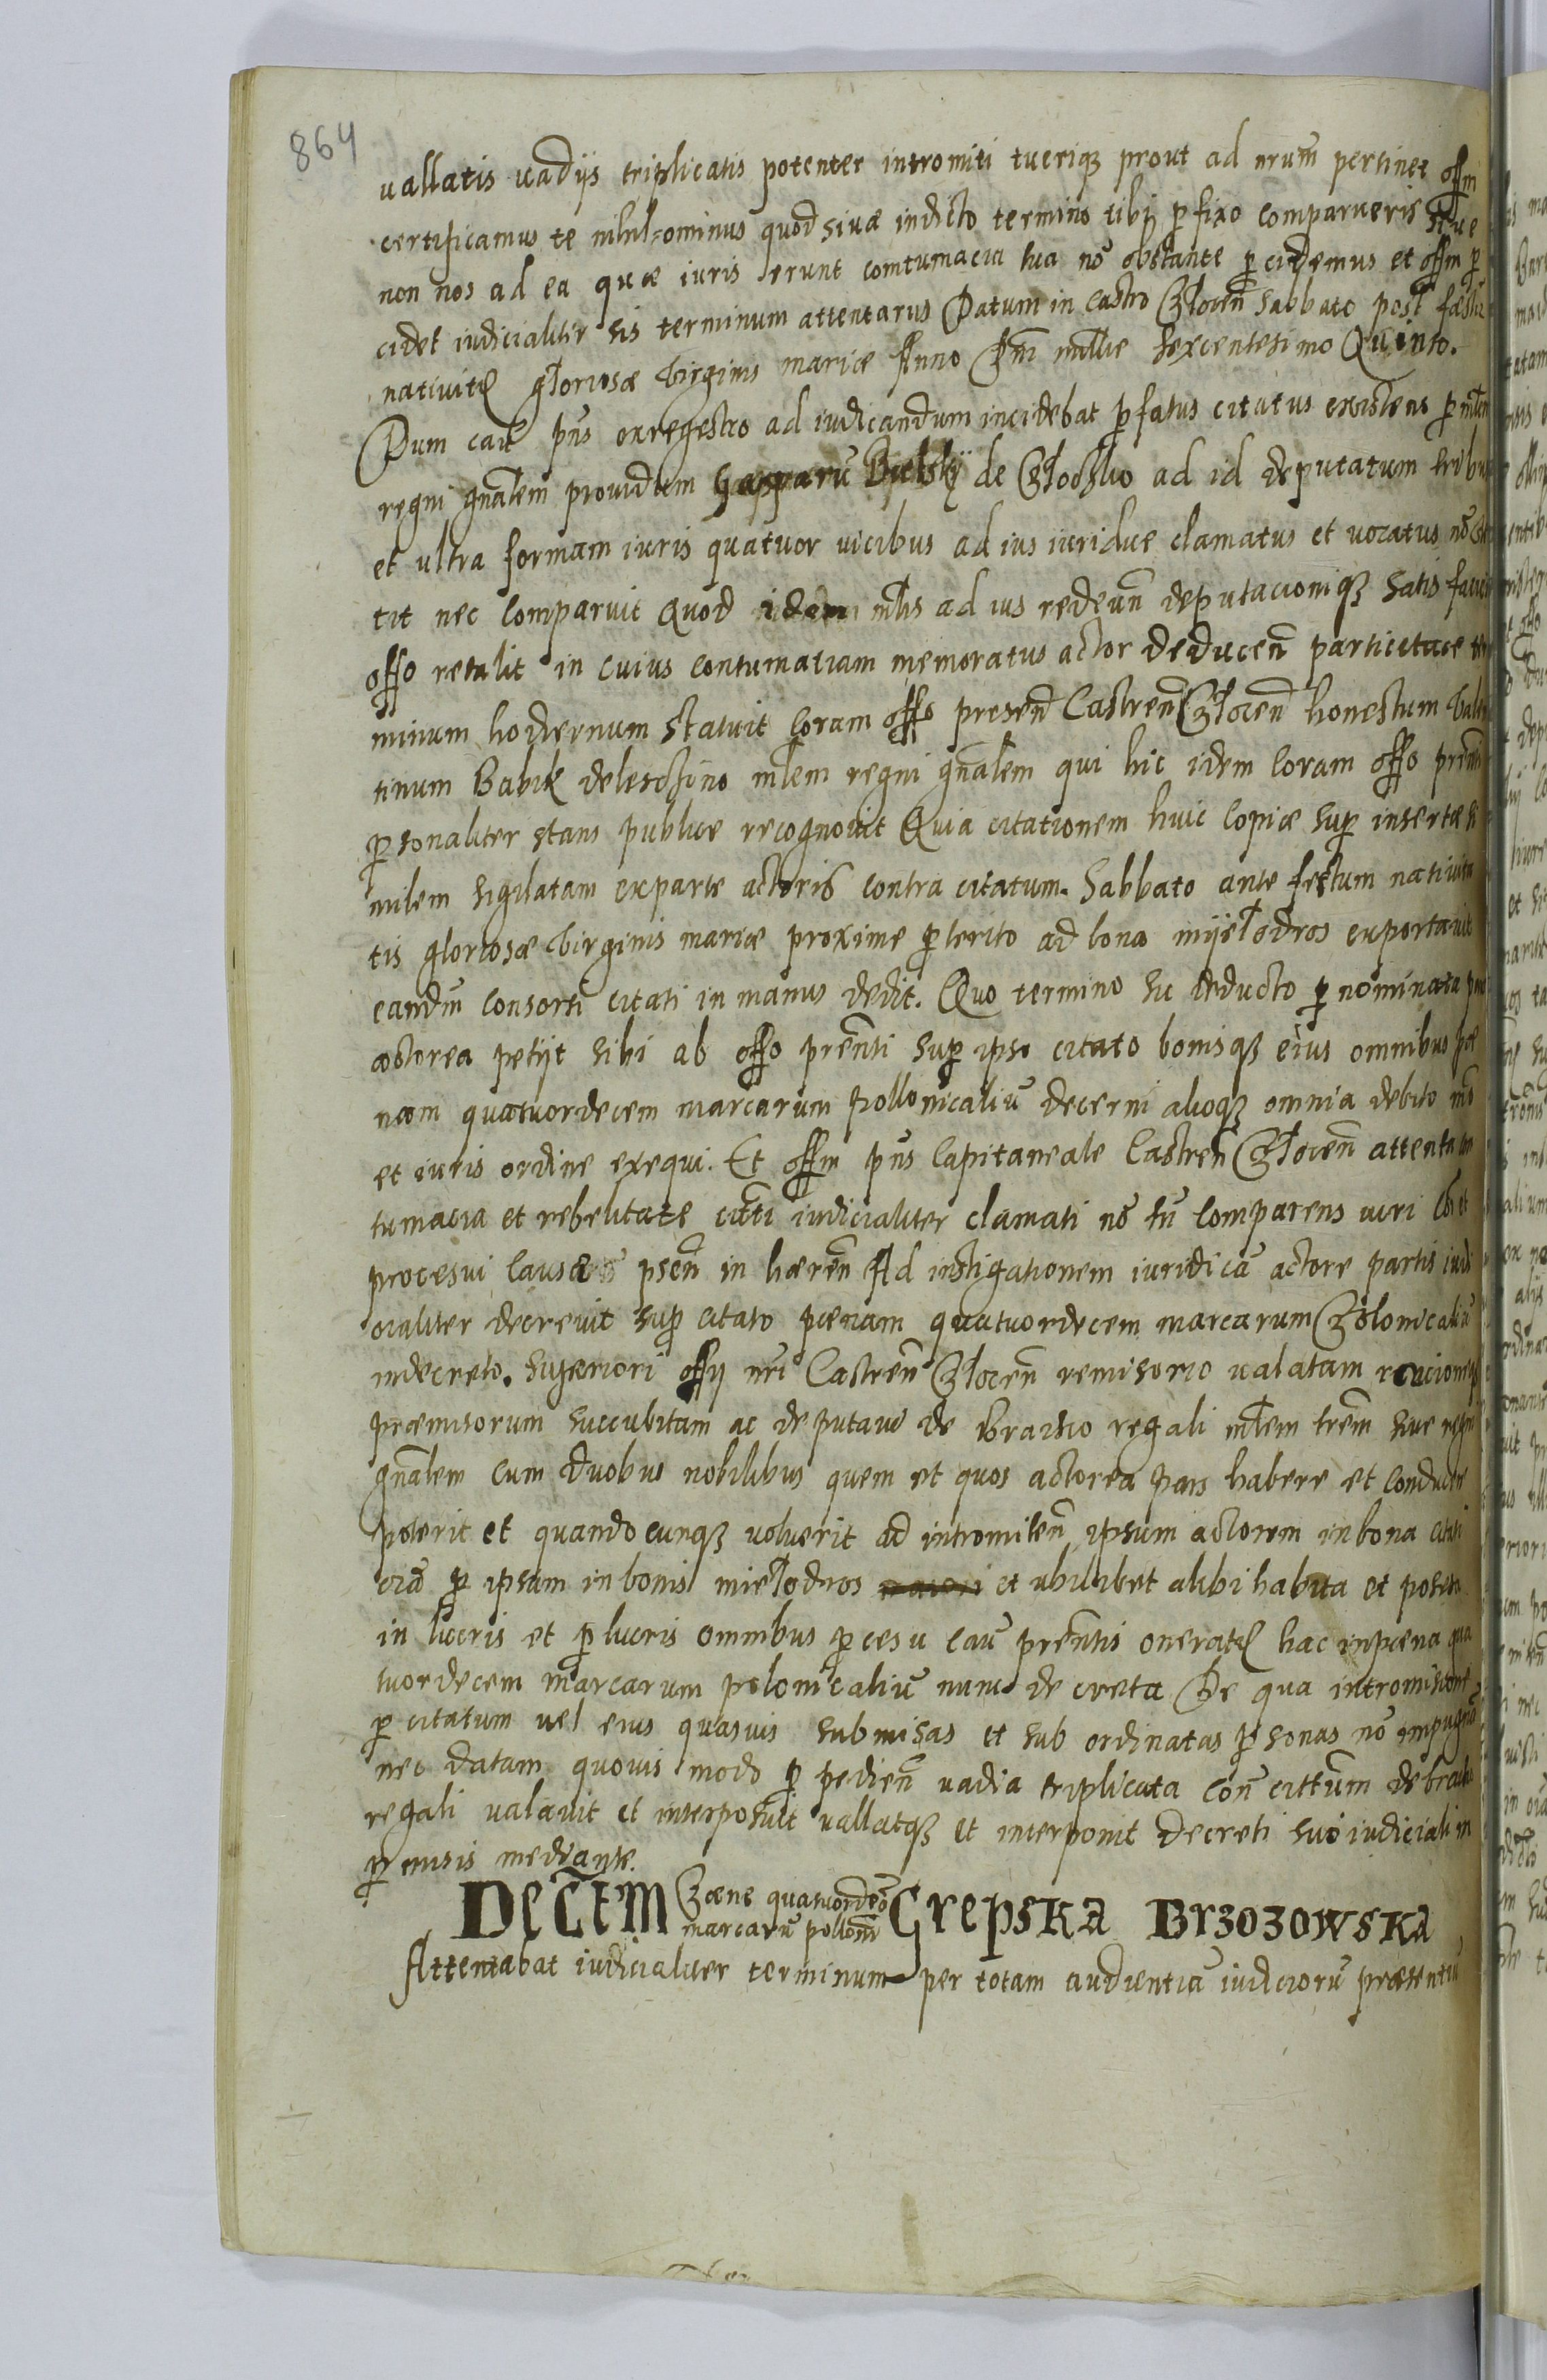 864
vallatis vadijs triplicatis potenter intromiti tueriq prout ad nrum pertinet offm
certificamus te nihil-ominus quod siuæ indicto termino tibi pfixo comparueris siue
non nos ad ea quæ iuris erunt comtumacia tua nõ obstante pcidemus et offm p
cidet iudicialiter sis terminum attentarus Datum in Castro Złocen Sabbato post fæstũ
nativit gloriosæ Virginis mariæ Anno Dni mille sexcentesimo Quinto.
Dum cau pns ex regestro ad iudicandum incidebat pfatus citatus existens p mlem
regni gnalem providum Gasparũ Bielskÿ de Złoczko ad id deputatum tribus
et ultra formam iuris quatuor vicibus ad ius iuridice clamatus et vocatus nõ
tit nec Comparuit Quod idem mlis ad ius redeun deputacioniq satis
offo retulit in cuius contumatiam memoratus actor deducen particitace ter
minum hodiernum statuit Coram offo presen Castren Złocen honestum Valen
tinum Babik de mlem regni gnalem qui hic idem Coram offo prenti
psonaliter stans publice recognouit Quia citationem huic Copiæ sup insertæ si
milem sigilatam ex parte actoris contra citatum. Sabbato ante festum nativita
tis gloriosæ Virginis mariæ proxime pterito ad bona mijełodros exportauit
eandm consorti citati in manus dedit. Quo termino sic deducto pnominata pars
actorea petijt sibi ab offo prenti sup ipso citato bonisq eius omnibus pæ
nam quatuordecem marcarum pollonicaliũ decerni alioq omnia debito mõ
et iuris ordine exequi. Et offm pns Capitaneale Castren Złocen attenta con
tumacia et rebelitate citti iudicialiter clamati nõ tñ Comparens iuri
procesui Causæ psen in hæren Ad instigationem iuridicã actore partis iudi
cialiter decrevit sup citato pænam quatuordecem marcarum Polonicaliũ
in decreto. Superiori offij nri Castren Złocen remisorio valatam
præmisorum succubitam ac deputavit de brachio regali mlem trem sive regni
gnalem cum duobus nobilibus quem et quos actorea pars habere et Conducere
poterit et quandocunq voluerit ad intromiten ipsum actorem in bona citati
oia p ipsum in bonis miełodros et ubilibet alibi habita et posita
in lucris et plucris omnibus pcesu cau prentis onerat hac in pæna qua
tuordecem marcarum polonicaliũ nunc decreta De qua intromisione
p citatum vel eius quasvis submisas et sub ordinatas psonas nõ impugnã
nec datam quovis modo p pedien vadia triplicata Con cittum de brachio
regali valavit et interposuit vallatq et interponit decreti sui iudiciali in
pmisis mediante.
Dectm Pæne quatuordeõ marcarũ pollonic Grepska Brzozowska
Attentabat iudicialiter terminum per totam audientiã iudiciorũ præsentiũ